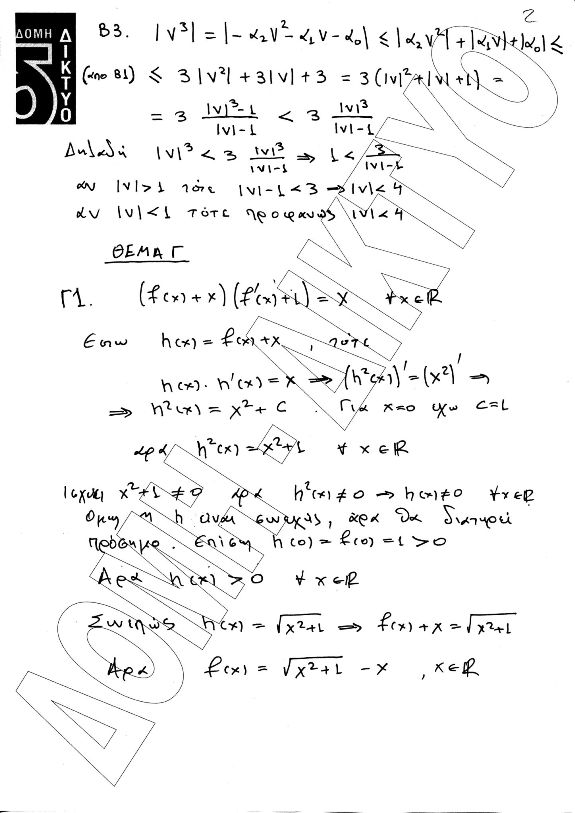 2
ΔΟΜΗ
5
ΔΙΚΤΥΟ
Β3. |v³| = |-α₂v² - α₁v - α₀| ≤ |α₂v²| + |α₁v| + |α₀| ≤
(απο Β1) ≤ 3|v²| + 3|v| + 3 = 3(|v|² + |v| + 1) =
= 3 (|v|³-1)/(|v|-1) < 3 |v|³/(|v|-1)
Δηλαδή |v|³ < 3 |v|³/(|v|-1) ⇒ 1 < 3/(|v|-1)
αν |v|>1 τότε |v|-1<3 → |v|<4
αν |v|<1 τότε προφανώς |v|<4
ΘΕΜΑ Γ
Γ1. (f(x)+x)(f'(x)+1) = x ∀x∈ℝ
Εστω h(x) = f(x)+x, τότε
h(x)·h'(x) = x ⇒ (h²(x))' = (x²)' ⇒
⇒ h²(x) = x² + c. Για x=0 εχω c=1
αρα h²(x) = x²+1 ∀ x∈ℝ
Ισχύει x²+1 ≠ 0 αρα h²(x) ≠ 0 → h(x) ≠ 0 ∀x∈ℝ
Ομως η h είναι συνεχής, άρα θα διατηρεί
πρόσημο. Επίσης h(0) = f(0) = 1 > 0
Αρα h(x) > 0 ∀ x∈ℝ
Συνεπώς h(x) = √(x²+1) ⇒ f(x)+x = √(x²+1)
Αρα f(x) = √(x²+1) - x, x∈ℝ
ΔΟΜΗ - ΔΙΚΤΥΟ